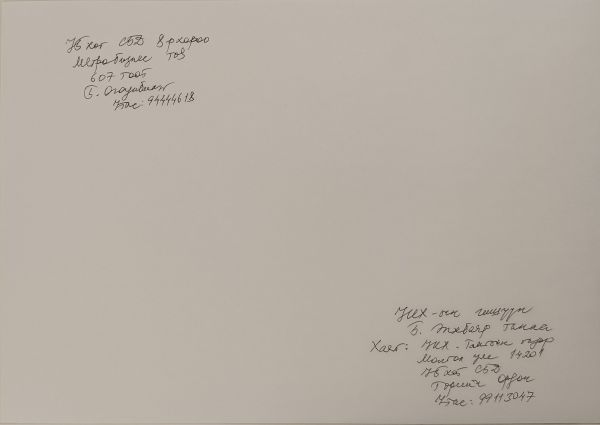 УБ хот СБД 8р хороо
Метробизнес төв
607 тоот
Б.
Утас: 94444618
УИХ-ын гишүүн
Б. Энхбаяр танаа
Хаяг: УИХ-Тамгын газар
Монгол улс 14201
УБ хот СБД
Төрийн Ордон
Утас: 99113047